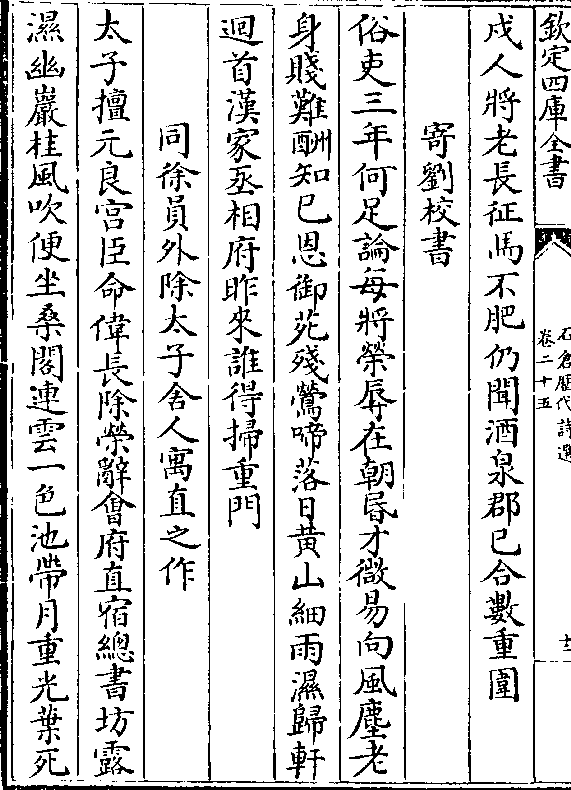 欽定四庫全書
石倉歷代詩選
卷二十五
十三
戍人將老長征馬不肥仍聞酒泉郡已合數重圍
寄劉校書
俗吏三年何足論每將榮辱在朝昬才微易向風塵老
身賤難酬知已恩御苑殘鶯啼落日黄山細雨濕歸軒
迴首漢家丞相府昨來誰得掃重門
同徐員外除太子舍人寓直之作
太子擅元良宫臣命偉長除榮辭㑹府直宿總書坊露
濕幽巖桂風吹便坐桑閣連雲一色池帶月重光葉死